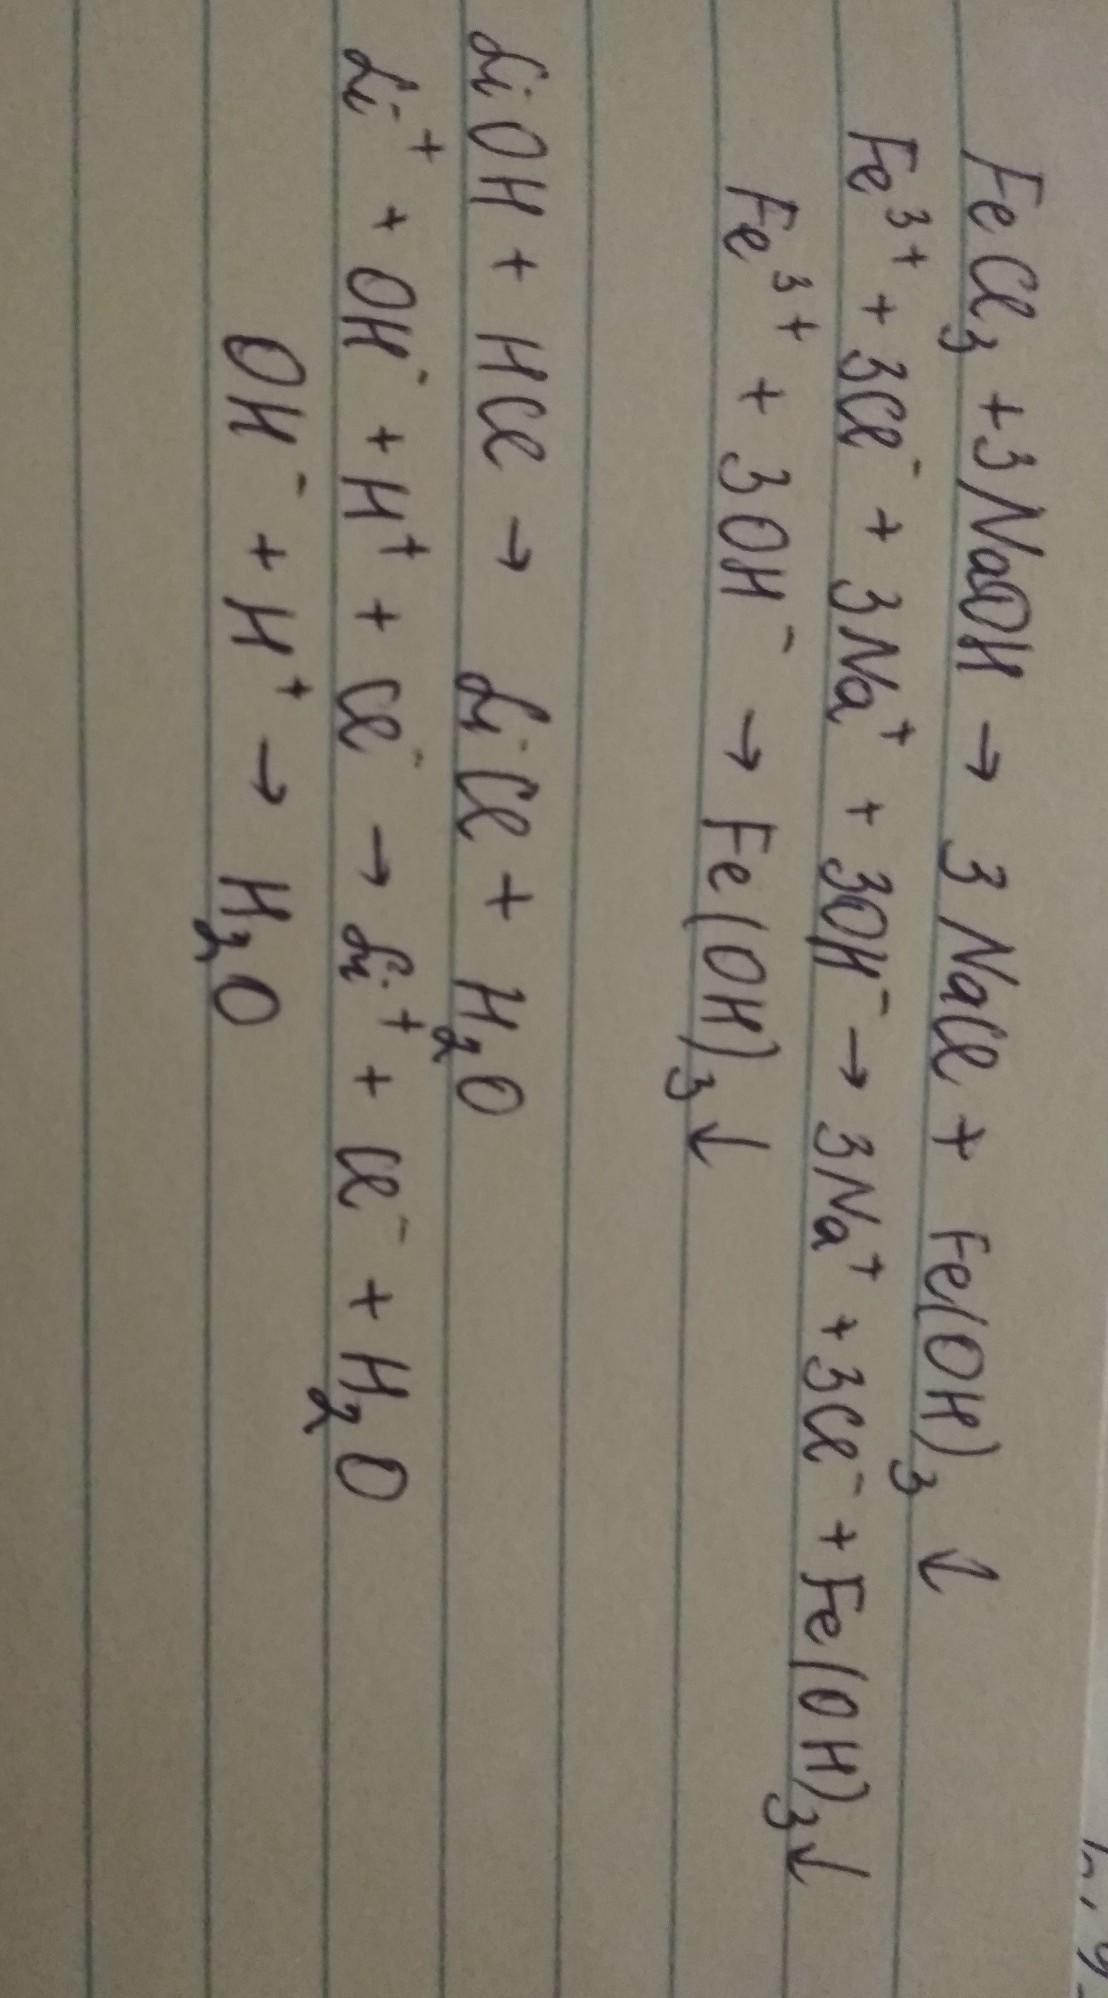 FeCl₃ + 3NaOH → 3NaCl + Fe(OH)₃ ↓
Fe³⁺ + 3Cl⁻ + 3Na⁺ + 3OH⁻ → 3Na⁺ + 3Cl⁻ + Fe(OH)₃↓
Fe³⁺ + 3OH⁻ → Fe(OH)₃↓
LiOH + HCl → LiCl + H₂O
Li⁺ + OH⁻ + H⁺ + Cl⁻ → Li⁺ + Cl⁻ + H₂O
OH⁻ + H⁺ → H₂O